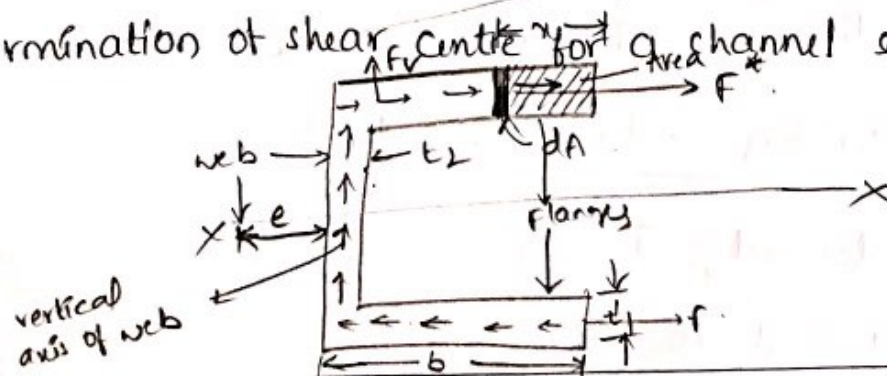 rmination of shear centre for a channel s
Fv
x
Area
F
dA
web
t2
X
e
X
Flanges
vertical
axis of web
t
F
b